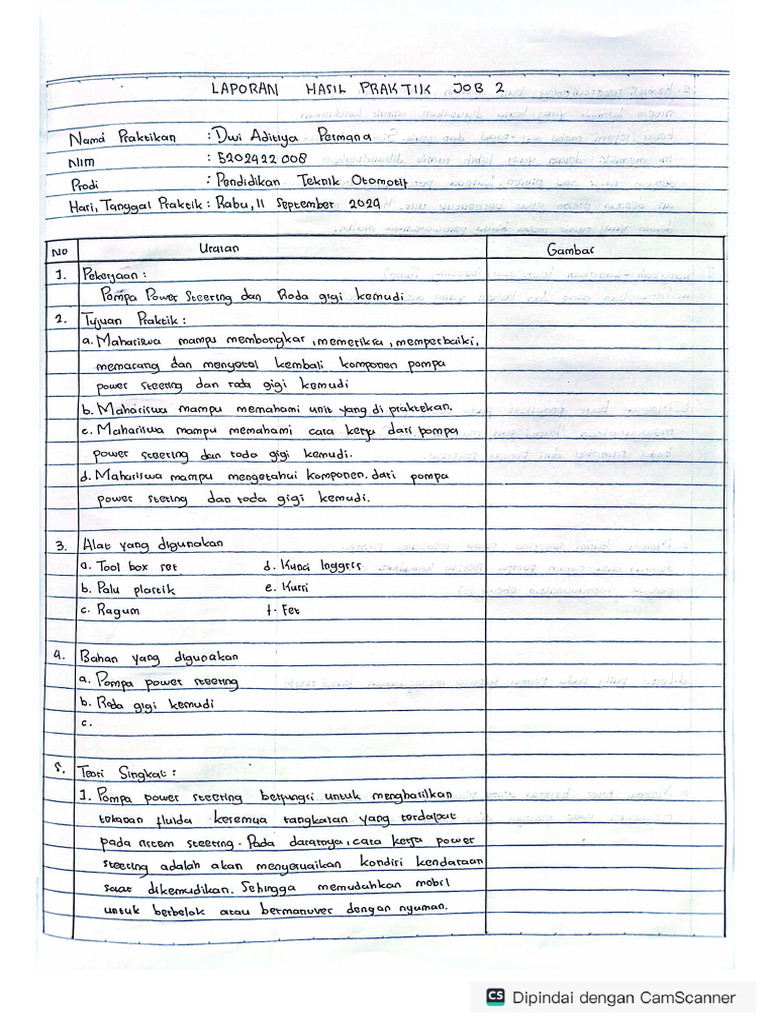 LAPORAN HASIL PRAKTIK JOB 2
Nama Praktikan : Dwi Aditiya Permana
Nim : 5202422008
Prodi : Pendidikan Teknik Otomotif
Hari, Tanggal Praktik : Rabu, 11 September 2024
No Uraian Gambar
1. Pekerjaan :
Pompa Power Steering dan Roda gigi kemudi
2. Tujuan Praktik :
a. Mahasiswa mampu membongkar, memeriksa, memperbaiki,
memasang dan menyetel kembali komponen pompa
power steering dan roda gigi kemudi
b. Mahasiswa mampu memahami unit yang di praktekan.
c. Mahasiswa mampu memahami cara kerja dari pompa
power steering dan roda gigi kemudi.
d. Mahasiswa mampu mengetahui komponen. dari pompa
power stering dan roda gigi kemudi.
3. Alat yang digunakan
a. Tool box set d. Kunci Inggris
b. Palu plastik e. Kursi
c. Ragum f. Fet
4. Bahan yang digunakan
a. Pompa power steering
b. Roda gigi kemudi
c.
5. Teori Singkat :
1. Pompa power steering berfungsi untuk menghasilkan
tekanan fluida keremua rangkaian yang terdapat
pada sistem steering. Pada dasarnya, cara kerja power
steering adalah akan menyesuaikan kondisi kendaraan
saat dikemudikan. Sehingga memudahkan mobil
untuk berbelok atau bermanuver dengan nyuman.
CS Dipindai dengan CamScanner